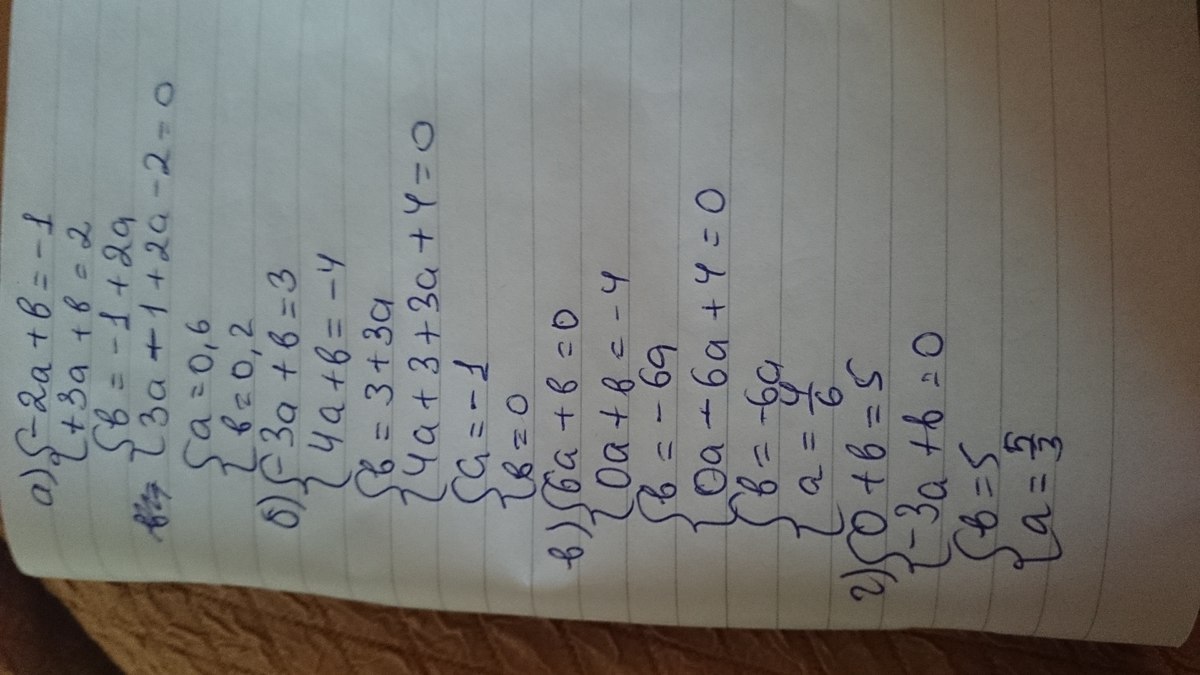 а) { -2a + b = -1
{ +3a + b = 2
{ b = -1 + 2a
{ 3a + 1 + 2a - 2 = 0
{ a = 0,6
{ b = 0,2
б) { -3a + b = 3
{ 4a + b = -4
{ b = 3 + 3a
{ 4a + 3 + 3a + 4 = 0
{ a = -1
{ b = 0
в) { 6a + b = 0
{ 0a + b = -4
{ b = -6a
{ 0a - 6a + 4 = 0
{ b = -6a
{ a = 4/6
г) { 0 + b = 5
{ -3a + b = 0
{ b = 5
{ a = 5/3